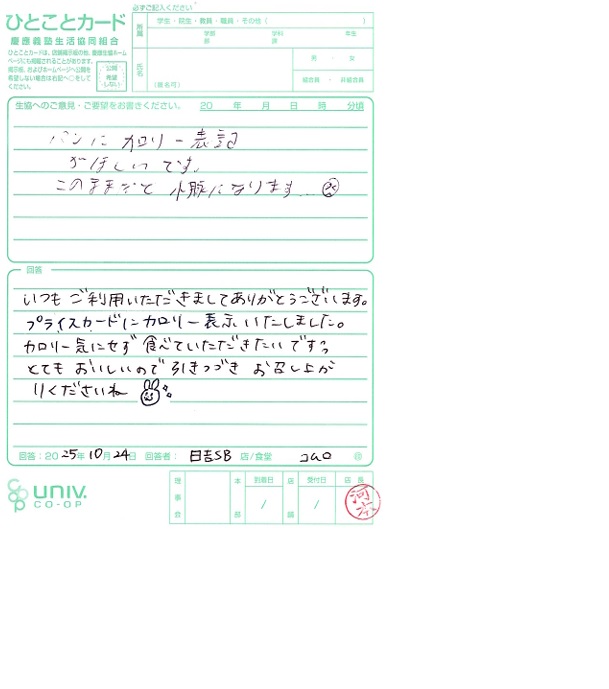 必ずご記入ください
ひとことカード
慶應義塾生活協同組合
ひとことカードは、店舗掲示板の他、慶應生協ホーム
ページにも掲載されることがあります。
掲示板、およびホームページへ公開を
希望しない場合は右記へ○をして
ください。
公開
希望
しない
所属
学生・院生・教員・職員・その他（　　）
学部
学科
課
年生
氏名
（匿名可）
男 ・ 女
組合員 ・ 非組合員
生協へのご意見・ご要望をお書きください。 20　年　月　日　時　分頃
パンにカロリー表記
がほしいです。
このままだと小豚になります…
回答
いつもご利用いただきましてありがとうございます。
プライスカードにカロリー表示いたしました。
カロリー気にせず食べていただきたいですっ
とてもおいしいので引きつづきお召し上が
りくださいね
回答：2025年10月24日 回答者： 日吉SB 店/食堂
㊞
UNIV.
CO-OP
理事会
本部
到着日
/
店舗
受付日
/
店長